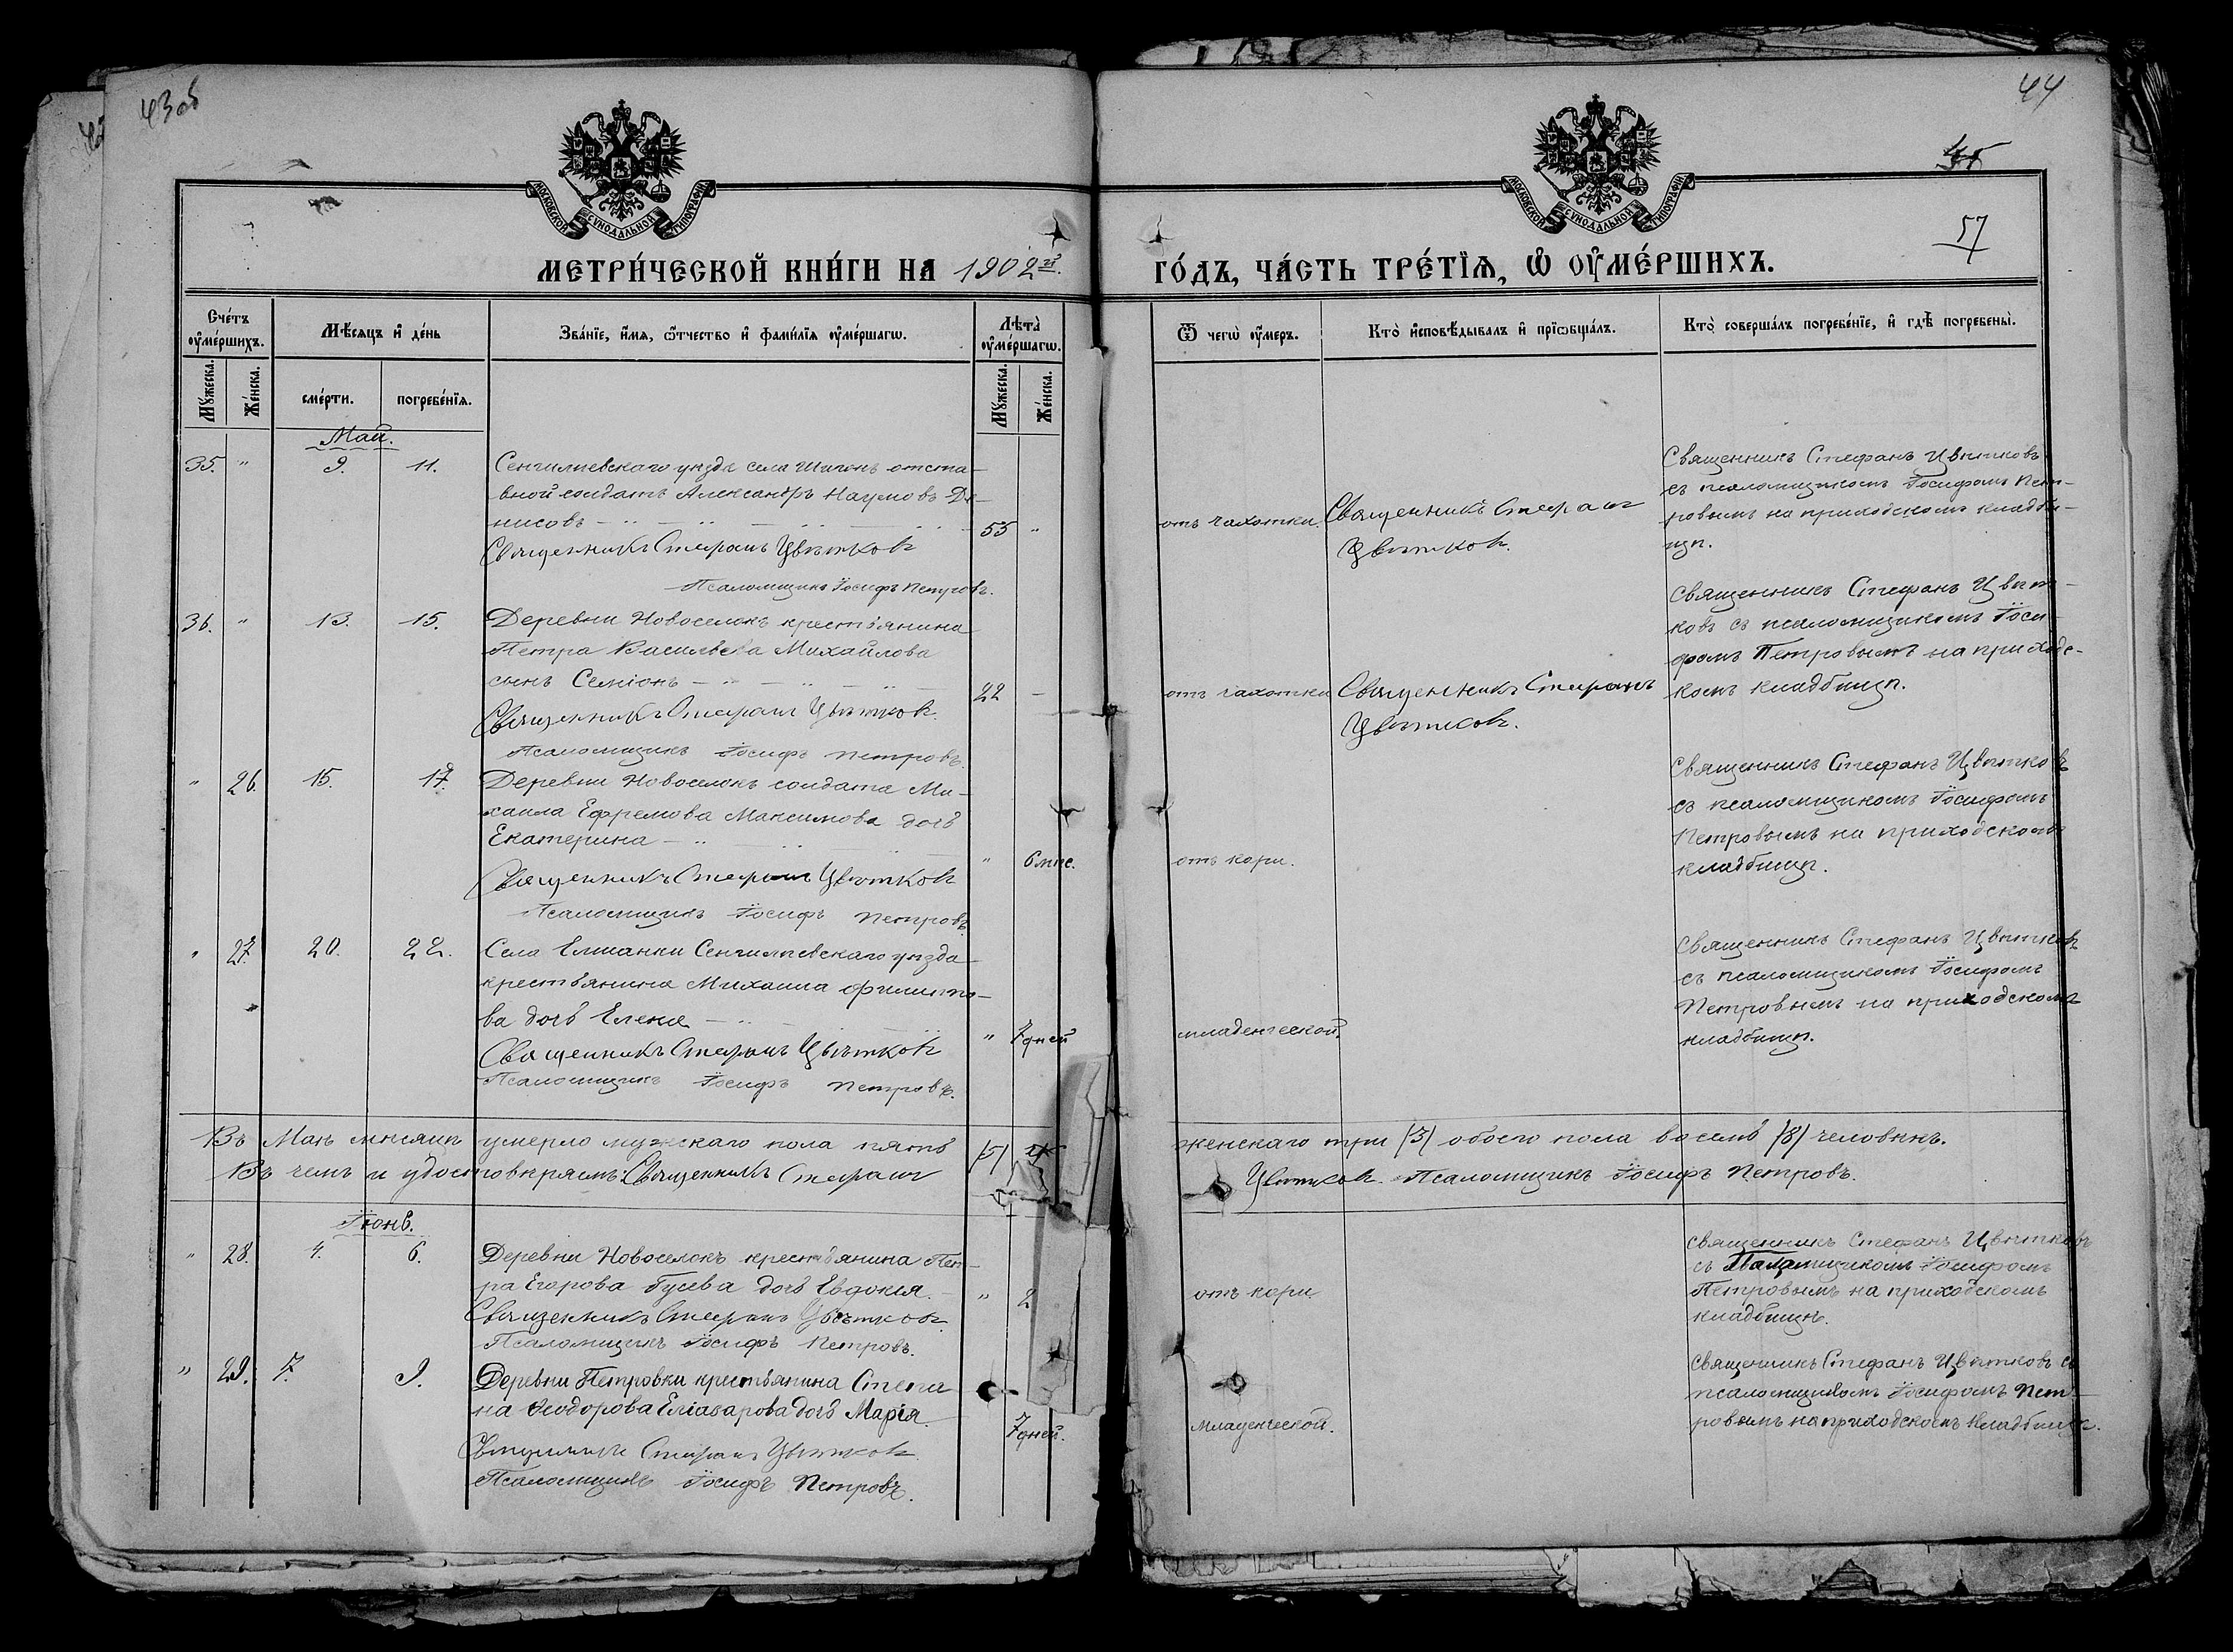 43об
44
45
57
МОСКОВСКОЙ СУНОДАЛЬНОЙ ТИПОГРАФІИ
МОСКОВСКОЙ СУНОДАЛЬНОЙ ТИПОГРАФІИ
МЕТРИ́ЧЕСКОЙ КНИ́ГИ НА 1902й.
ГО́ДЪ, ЧА́СТЬ ТРЕ́ТІѦ, Ѡ҆ ОУ҆МЕ́РШИХЪ.
Сче́тъ оу҆ме́ршихъ.
Мѣ́сяцъ и҆ де́нь
Зва́нїе, и҆́мѧ, ѻ҆́тчество и҆ фами́лїѧ оу҆ме́ршагѡ.
Лѣта̀ оу҆ме́ршагѡ.
Ѿ чегѡ̀ оу҆́меръ.
Кто̀ и҆сповѣ́дывалъ и҆ прїѡбща́лъ.
Кто̀ соверша́лъ погребе́нїе, и҆ гдѣ̀ погребены̀.
Му́жеска.
Же́нска.
сме́рти.
погребе́нїѧ.
Му́жеска.
Же́нска.
Май.
35. " 9. 11. Сенгилѣевскаго уѣзда села Шигонъ отста-
вной солдатъ Александръ Наумовъ Де-
нисовъ 55 "
Священникъ Стефанъ Цвѣтковъ
Псаломщикъ Іосифъ Петровъ.
отъ чахотки.
Священникъ Стефанъ
Цвѣтковъ.
Священникъ Стефанъ Цвѣтковъ
съ псаломщикомъ Іосифомъ Пет-
ровымъ на приходскомъ кладби-
щѣ.
36. " 13. 15. Деревни Новоселокъ крестьянина
Петра Васильева Михайлова
сынъ Семіонъ 22 -
Священникъ Стефанъ Цвѣтковъ.
Псаломщикъ Іосифъ Петровъ.
отъ чахотки
Священникъ Стефанъ
Цвѣтковъ.
Священникъ Стефанъ Цвѣт-
ковъ съ псаломщикомъ Іоси-
фомъ Петровымъ на приходс-
комъ кладбищѣ.
" 26. 15. 17. Деревни Новоселокъ солдата Ми-
хаила Ефремова Максимова дочь
Екатерина " 6 мѣс.
Священникъ Стефанъ Цвѣтковъ
Псаломщикъ Іосифъ Петровъ
отъ кори.
Священникъ Стефанъ Цвѣтковъ
съ псаломщикомъ Іосифомъ
Петровымъ на приходскомъ
кладбищѣ.
" 27. 20. 22. Села Елшанки Сенгилѣевскаго уѣзда
крестьянина Михаила Филиппо-
ва дочь Елена " 7 дней
Священникъ Стефанъ Цвѣтковъ
Псаломщикъ Іосифъ Петровъ.
младенческой.
Священникъ Стефанъ Цвѣтковъ
съ псаломщикомъ Іосифомъ
Петровымъ на приходскомъ
кладбищѣ.
Въ Маѣ мѣсяцѣ умерло мужскаго пола пять /5/ женскаго три /3/ обоего пола восемь /8/ человѣкъ.
Въ чемъ и удостовѣряемъ: Священникъ Стефанъ Цвѣтковъ. Псаломщикъ Іосифъ Петровъ.
Іюнь.
" 28. 4. 6. Деревни Новоселокъ крестьянина Пет-
ра Егорова Гусева дочь Евдокія. " 2
Священникъ Стефанъ Цвѣтковъ.
Псаломщикъ Іосифъ Петровъ.
отъ кори
Священникъ Стефанъ Цвѣтковъ
съ Псаломщикомъ Іосифомъ
Петровымъ на приходскомъ
кладбищѣ.
" 29. 7. 9. Деревни Петровки крестьянина Степа
на Ѳеодорова Еліазарова дочь Марія. 7 дней.
Священникъ Стефанъ Цвѣтковъ
Псаломщикъ Іосифъ Петровъ.
младенческой.
Священникъ Стефанъ Цвѣтковъ съ
псаломщикомъ Іосифомъ Пет-
ровымъ на приходскомъ кладбищѣ.